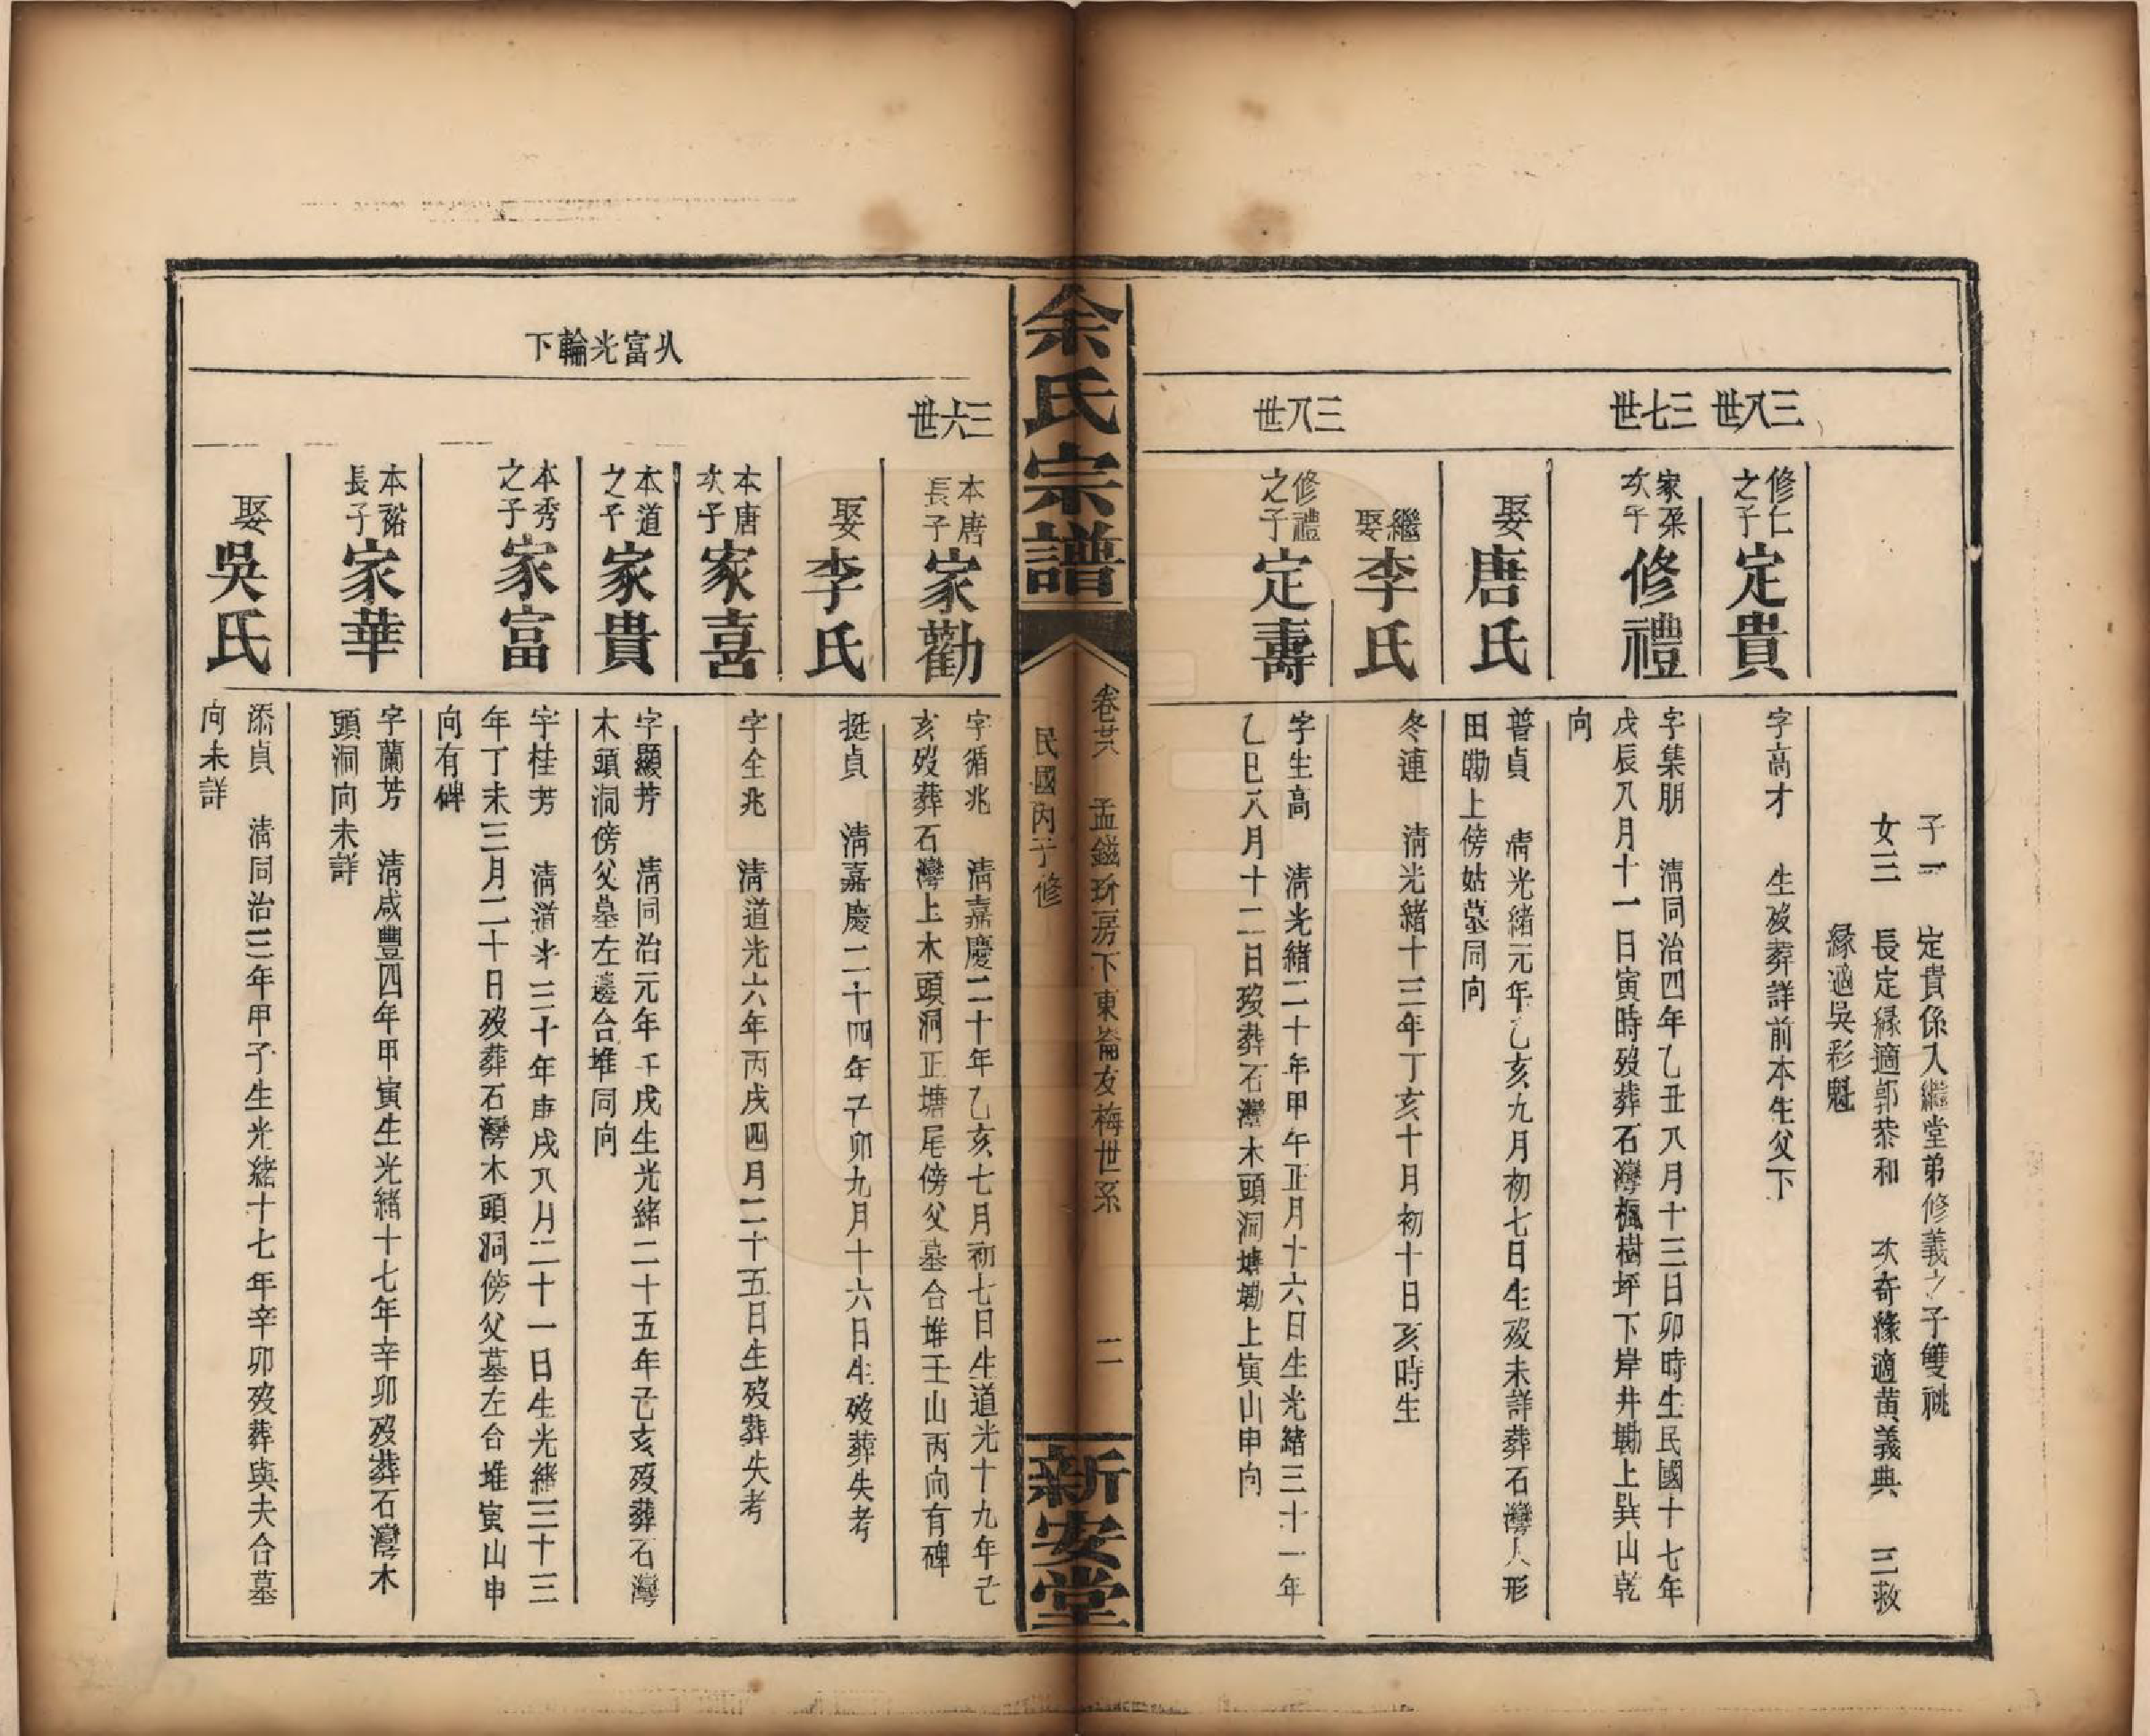 子一　定貴係入繼堂弟修義之子雙祧
女三　長定緣適郭恭和　次奇緣適黃義典　三救
緣適吳彩魁
三八世
修仁
之子
定貴
字高才　生歿葬詳前本生父下
三七世
家琹
次子
修禮
字集朋　清同治四年乙丑八月十三日卯時生民國十七年
戊辰八月十一日寅時歿葬石灣楓樹坪下岸井墈上巽山乾
向
娶
唐氏
普貞　清光緒元年乙亥九月初七日生歿未詳葬石灣人形
田墈上傍姑墓同向
繼
娶
李氏
冬連　清光緒十三年丁亥十月初十日亥時生
三八世
修禮
之子
定壽
字生高　清光緒二十年甲午正月十六日生光緒三十一年
乙巳八月十二日歿葬石灣木頭洞塘墈上寅山申向
余氏宗譜
卷廿六　孟鎡玠房下東崙友梅世系　二
民國丙子修
新安堂
三六世
本唐
長子
家勸
字循兆　清嘉慶二十年乙亥七月初七日生道光十九年己
亥歿葬石灣上木頭洞正塘尾傍父墓合堆壬山丙向有碑
娶
李氏
挺貞　清嘉慶二十四年己卯九月十六日生歿葬失考
本唐
次子
家喜
字全兆　清道光六年丙戌四月二十五日生歿葬失考
从富光輪下
本道
之子
家貴
字顯芳　清同治元年壬戌生光緒二十五年己亥歿葬石灣
木頭洞傍父墓左邊合堆同向
本秀
之子
家富
字桂芳　清道光三十年庚戌八月二十一日生光緒三十三
年丁未三月二十日歿葬石灣木頭洞傍父墓左合堆寅山申
向有碑
本裕
長子
家華
字蘭芳　清咸豐四年甲寅生光緒十七年辛卯歿葬石灣木
頭洞向未詳
娶
吳氏
添貞　清同治三年甲子生光緒十七年辛卯歿葬與夫合墓
向未詳